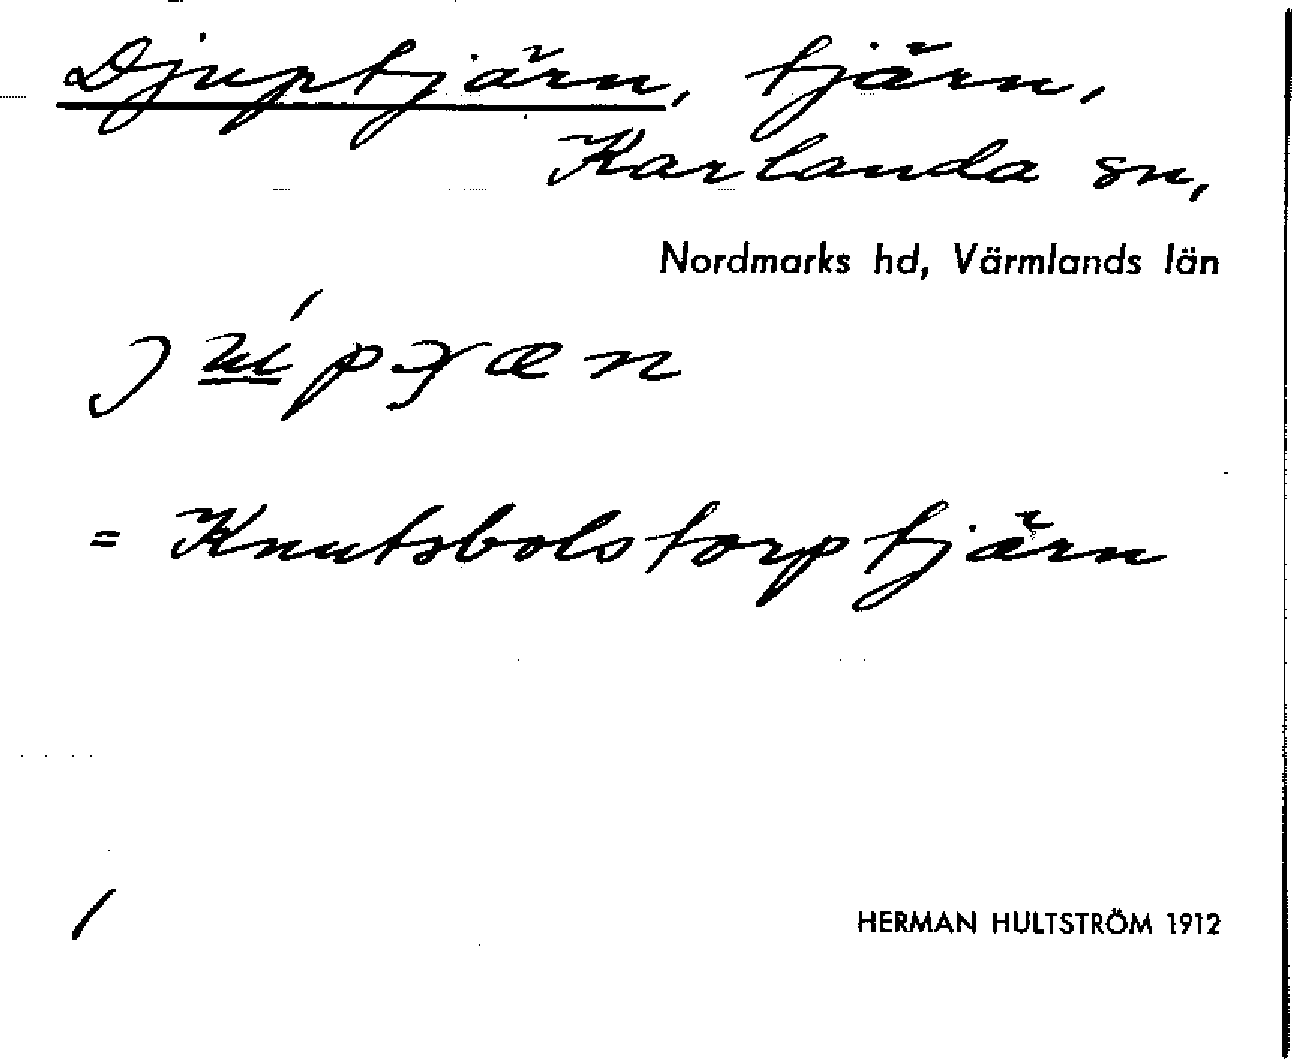 Djuptjärn, tjärn,
Karlanda sn,
Nordmarks hd, Värmlands län
= Knutsbolstorptjärn
HERMAN HULTSTRÖM 1912